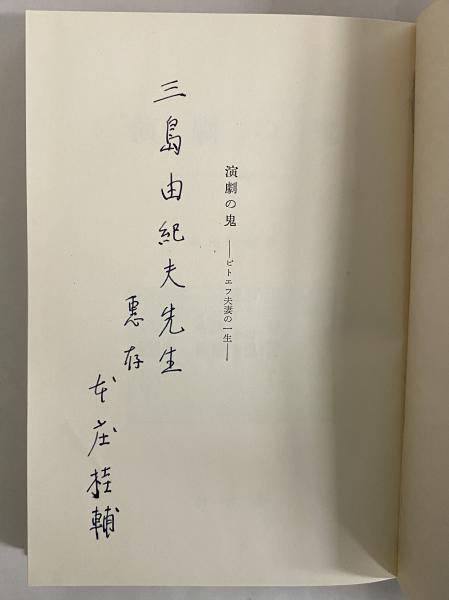 演劇の鬼
──ピトエフ夫妻の一生──
三島由紀夫先生
惠存
本庄桂輔